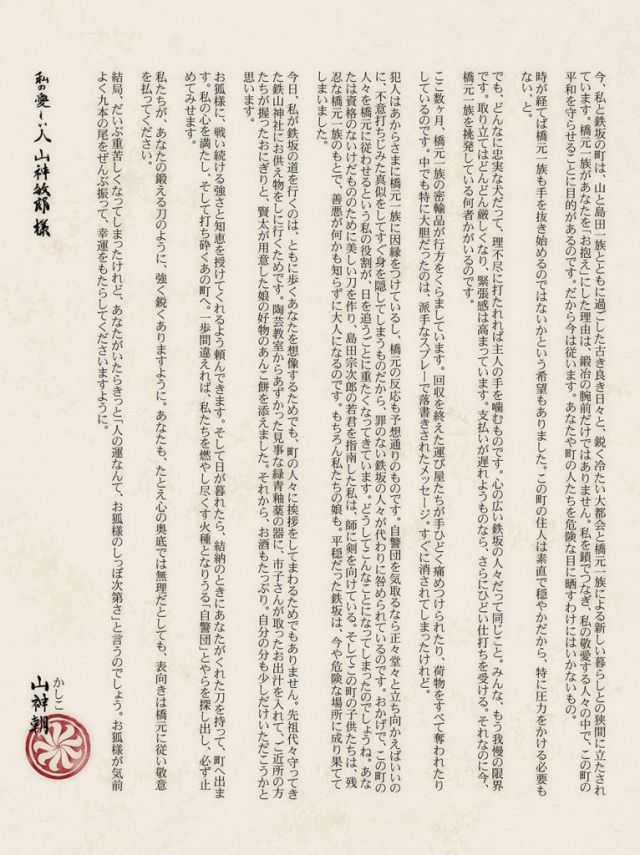 今、私と鉄坂の町は、山と島田一族とともに過ごした古き良き日々と、鋭く冷たい大都会と橋元一族による新しい暮らしとの狭間に立たされ
ています。橋元一族があなたを「お抱え」にした理由は、鍛冶の腕前だけではありません。私を鎖でつなぎ、私の敬愛する人々の中で、この町の
平和を守らせることに目的があるのです。だから今は従います。あなたや町の人たちを危険な目に晒すわけにはいかないもの。
時が経てば橋元一族も手を抜き始めるのではないかという希望もありました。この町の住人は素直で穏やかだから、特に圧力をかける必要も
ない、と。
でも、どんなに忠実な犬だって、理不尽に打たれれば主人の手を噛むものです。心の広い鉄坂の人々だって同じこと。みんな、もう我慢の限界
です。取り立てはどんどん厳しくなり、緊張感は高まっています。支払いが遅れようものなら、さらにひどい仕打ちを受ける。それなのに今、
橋元一族を挑発している何者かがいるのです。
ここ数ヶ月、橋元一族の密輸品が行方をくらましています。回収を終えた運び屋たちが手ひどく痛めつけられたり、荷物をすべて奪われたり
しているのです。中でも特に大胆だったのは、派手なスプレーで落書きされたメッセージ。すぐに消されてしまったけれど。
犯人はあからさまに橋元一族に因縁をつけているし、橋元の反応も予想通りのものです。自警団を気取るなら正々堂々と立ち向かえばいいの
に、不意打ちじみた真似をしてすぐ身を隠してしまうものだから、罪のない鉄坂の人々が代わりに咎められているのです。おかげで、この町の
人々を橋元に従わせるという私の役割が、日を追うごとに重たくなってきています。どうしてこんなことになってしまったのでしょうね。あな
たは資格のないけだもののために美しい刀を作り、島田宗次郎の若君を指南した私は、師に剣を向けている。そしてこの町の子供たちは、残
忍な橋元一族のもとで、善悪が何かも知らずに大人になるのです。もちろん私たちの娘も。平穏だった鉄坂は、今や危険な場所に成り果てて
しまいました。
今日、私が鉄坂の道を行くのは、ともに歩くあなたを想像するためでも、町の人々に挨拶をしてまわるためでもありません。先祖代々守ってき
た鉄山神社にお供え物をしに行くためです。陶芸教室からあずかった見事な緑青釉薬の器に、市子さんが取ったお出汁を入れて、ご近所の方
たちが握ったおにぎりと、賢太が用意した娘の好物のあんこ餅を添えました。それから、お酒もたっぷり。自分の分も少しだけいただこうかと
思います。
お狐様に、戦い続ける強さと知恵を授けてくれるよう頼んできます。そして日が暮れたら、結納のときにあなたがくれた刀を持って、町へ出ま
す。私の心を満たし、そして打ち砕くあの町へ。一歩間違えれば、私たちを燃やし尽くす火種となりうる「自警団」とやらを探し出し、必ず止
めてみせます。
私たちが、あなたの鍛える刀のように、強く鋭くありますように。あなたも、たとえ心の奥底では無理だとしても、表向きは橋元に従い敬意
を払ってください。
結局、だいぶ重苦しくなってしまったけれど、あなたがいたらきっと「人の運なんて、お狐様のしっぽ次第さ」と言うのでしょう。お狐様が気前
よく九本の尾をぜんぶ振って、幸運をもたらしてくださいますように。
かしこ
山神朝
私の愛しい人 山神敏郎様